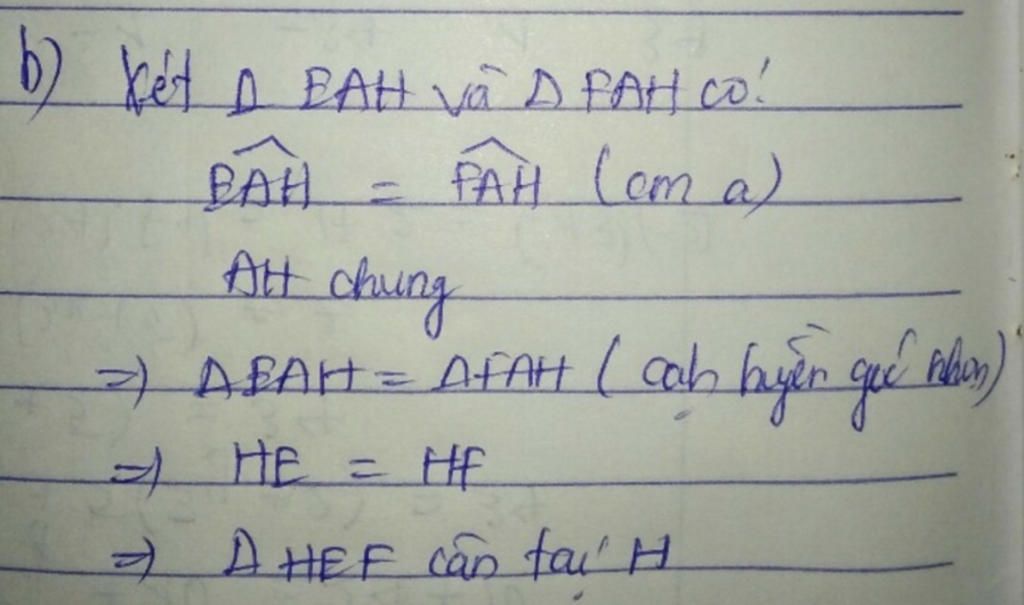 b) Xét Δ EAH và Δ FAH có:
EAH = FAH (cm a)
AH chung
=> ΔEAH = ΔFAH (cạnh huyền góc nhọn)
=> HE = HF
=> Δ HEF cân tại H